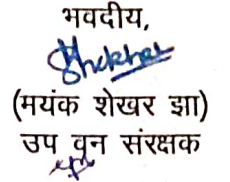 भवदीय,
Shekhar
(मयंक शेखर झा)
उप वन संरक्षक